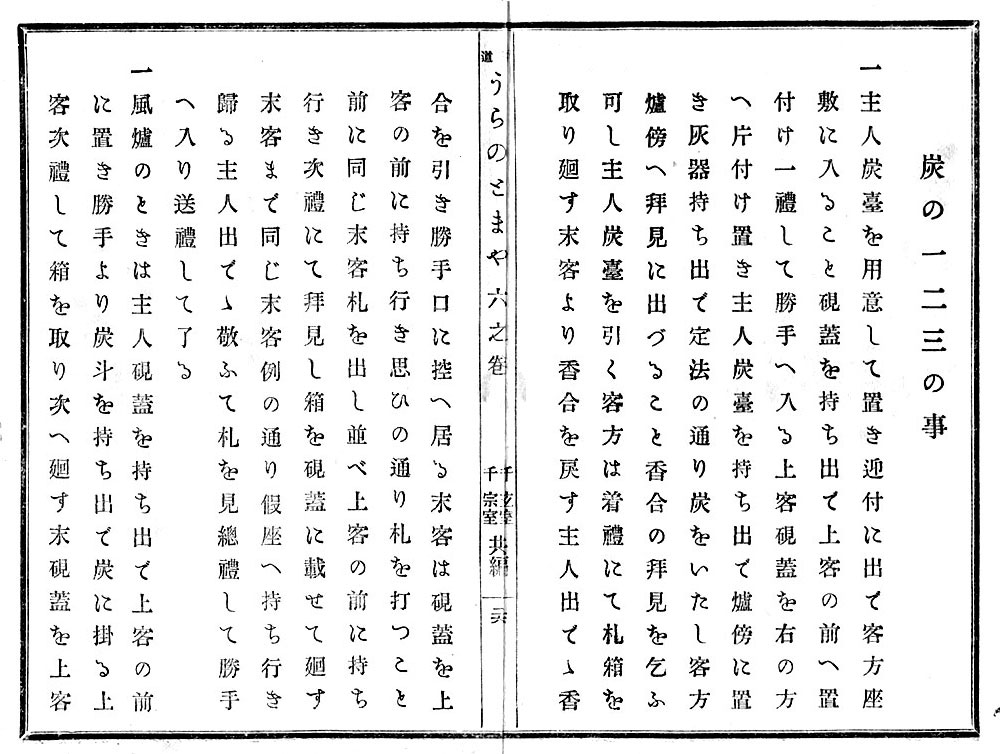 炭の一二三の事
一主人炭臺を用意して置き迎付に出で客方座
敷に入ること硯蓋を持ち出で上客の前へ置
付け一禮して勝手へ入る上客硯蓋を右の方
へ片付け置き主人炭臺を持ち出で爐傍に置
き灰器持ち出で定法の通り炭をいたし客方
爐傍へ拜見に出づること香合の拜見を乞ふ
可し主人炭臺を引く客方は着禮にて札箱を
取り廻す末客より香合を戻す主人出でゝ香
道
うらのとまや 六之卷
千玄室
千宗室
共編
二六
合を引き勝手口に控へ居る末客は硯蓋を上
客の前に持ち行き思ひの通り札を打つこと
前に同じ末客札を出し並べ上客の前に持ち
行き次禮にて拜見し箱を硯蓋に載せて廻す
末客まで同じ末客例の通り假座へ持ち行き
歸る主人出でゝ敬ふて札を見總禮して勝手
へ入り送禮して了る
一風爐のときは主人硯蓋を持ち出で上客の前
に置き勝手より炭斗を持ち出で炭に掛る上
客次禮して箱を取り次へ廻す末硯蓋を上客